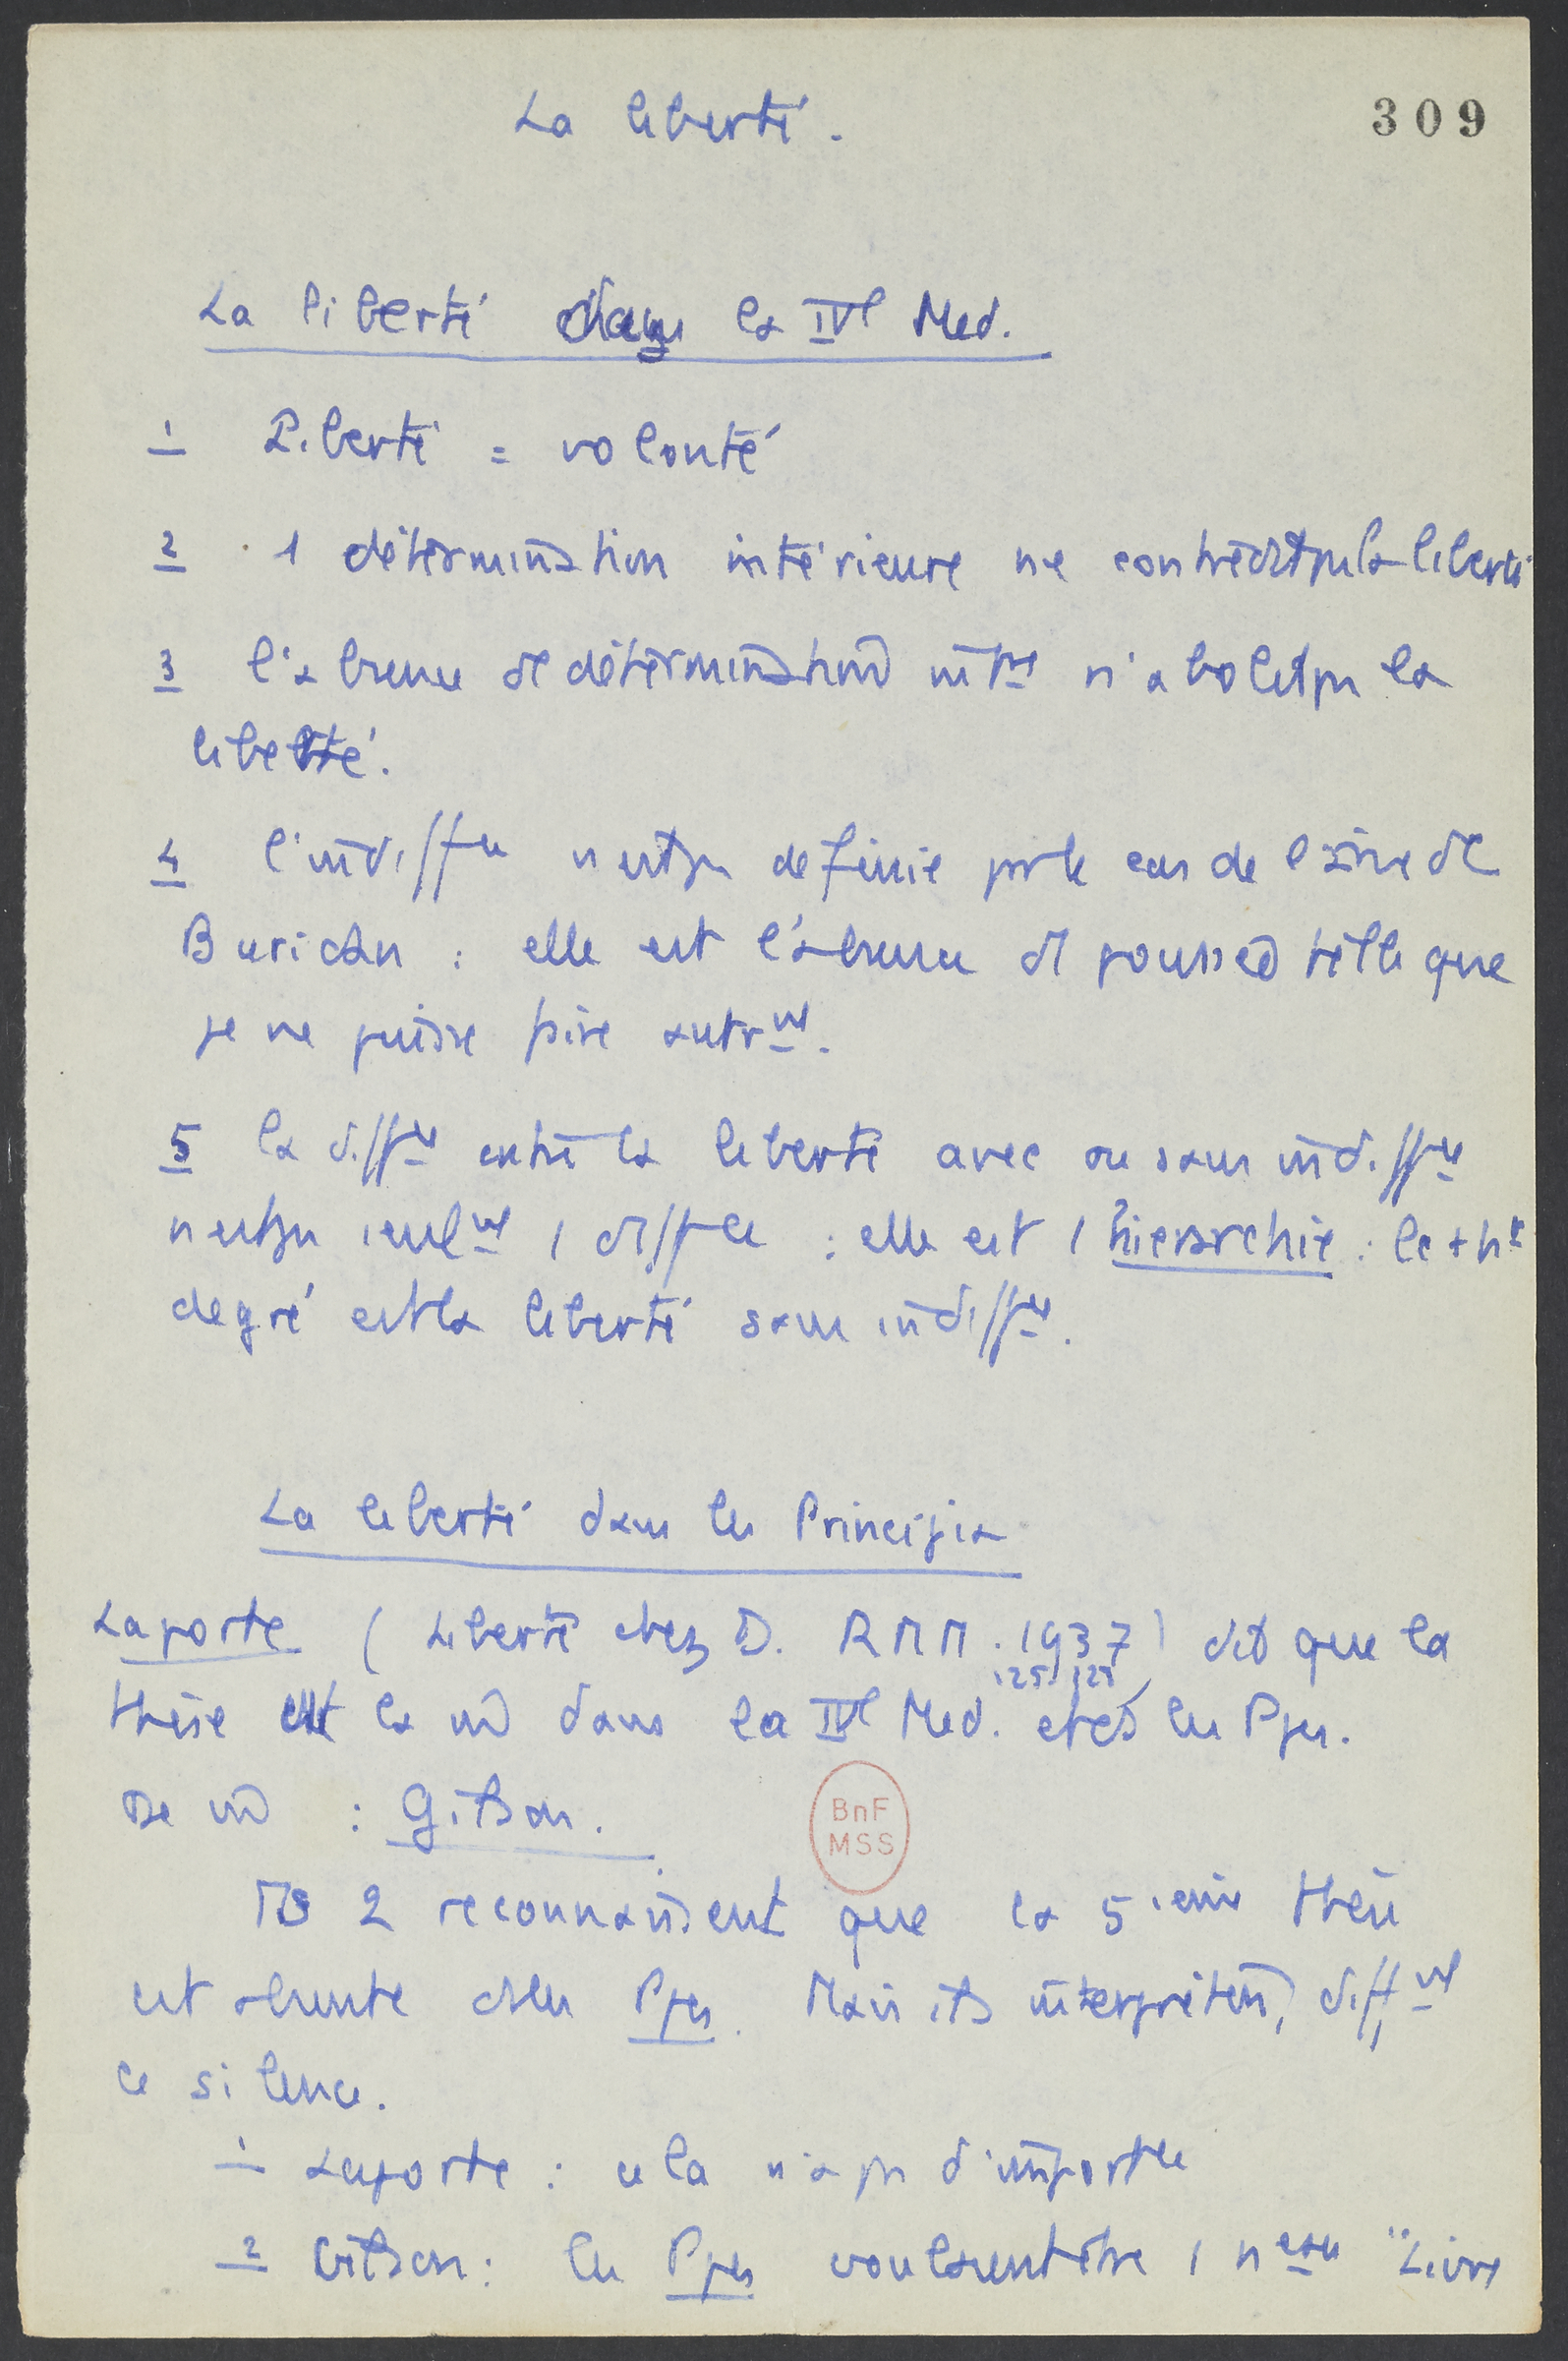 La liberté.
309
La liberté dans la IVe Med.
1 Liberté = volonté
2 1 détermination intérieure ne contredit pas la liberté
3 l'absence de détermination intre n'abolit pas la
liberté.
4 l'indiffce n'est pas definie par le cas de l'âne de
Buridan : elle est l'absence de poussée telle que
je ne puisse faire autrmt.
5 la diffce entre la liberté avec ou sans indiffce
n'est pas seulmt 1 diffce : elle est 1 hierarchie : le + ht
degré est la liberté sans indiffce.
La liberté dans les Principia
Laporte (Liberté chez D. RMM. 1937) dit que la
125 128
thèse est la m̂ dans la IVe Med. et ds les Ppes.
De m̂ : Gilson.
Ils 2 reconnaissent que la 5ieme thèse
est absente ds les Ppes. Mais ils interprètent diffmt
ce silence.
1 Laporte : cela n'a pas d'importce
2 Gilson : les Ppes voulaient être 1 nveau "Livre